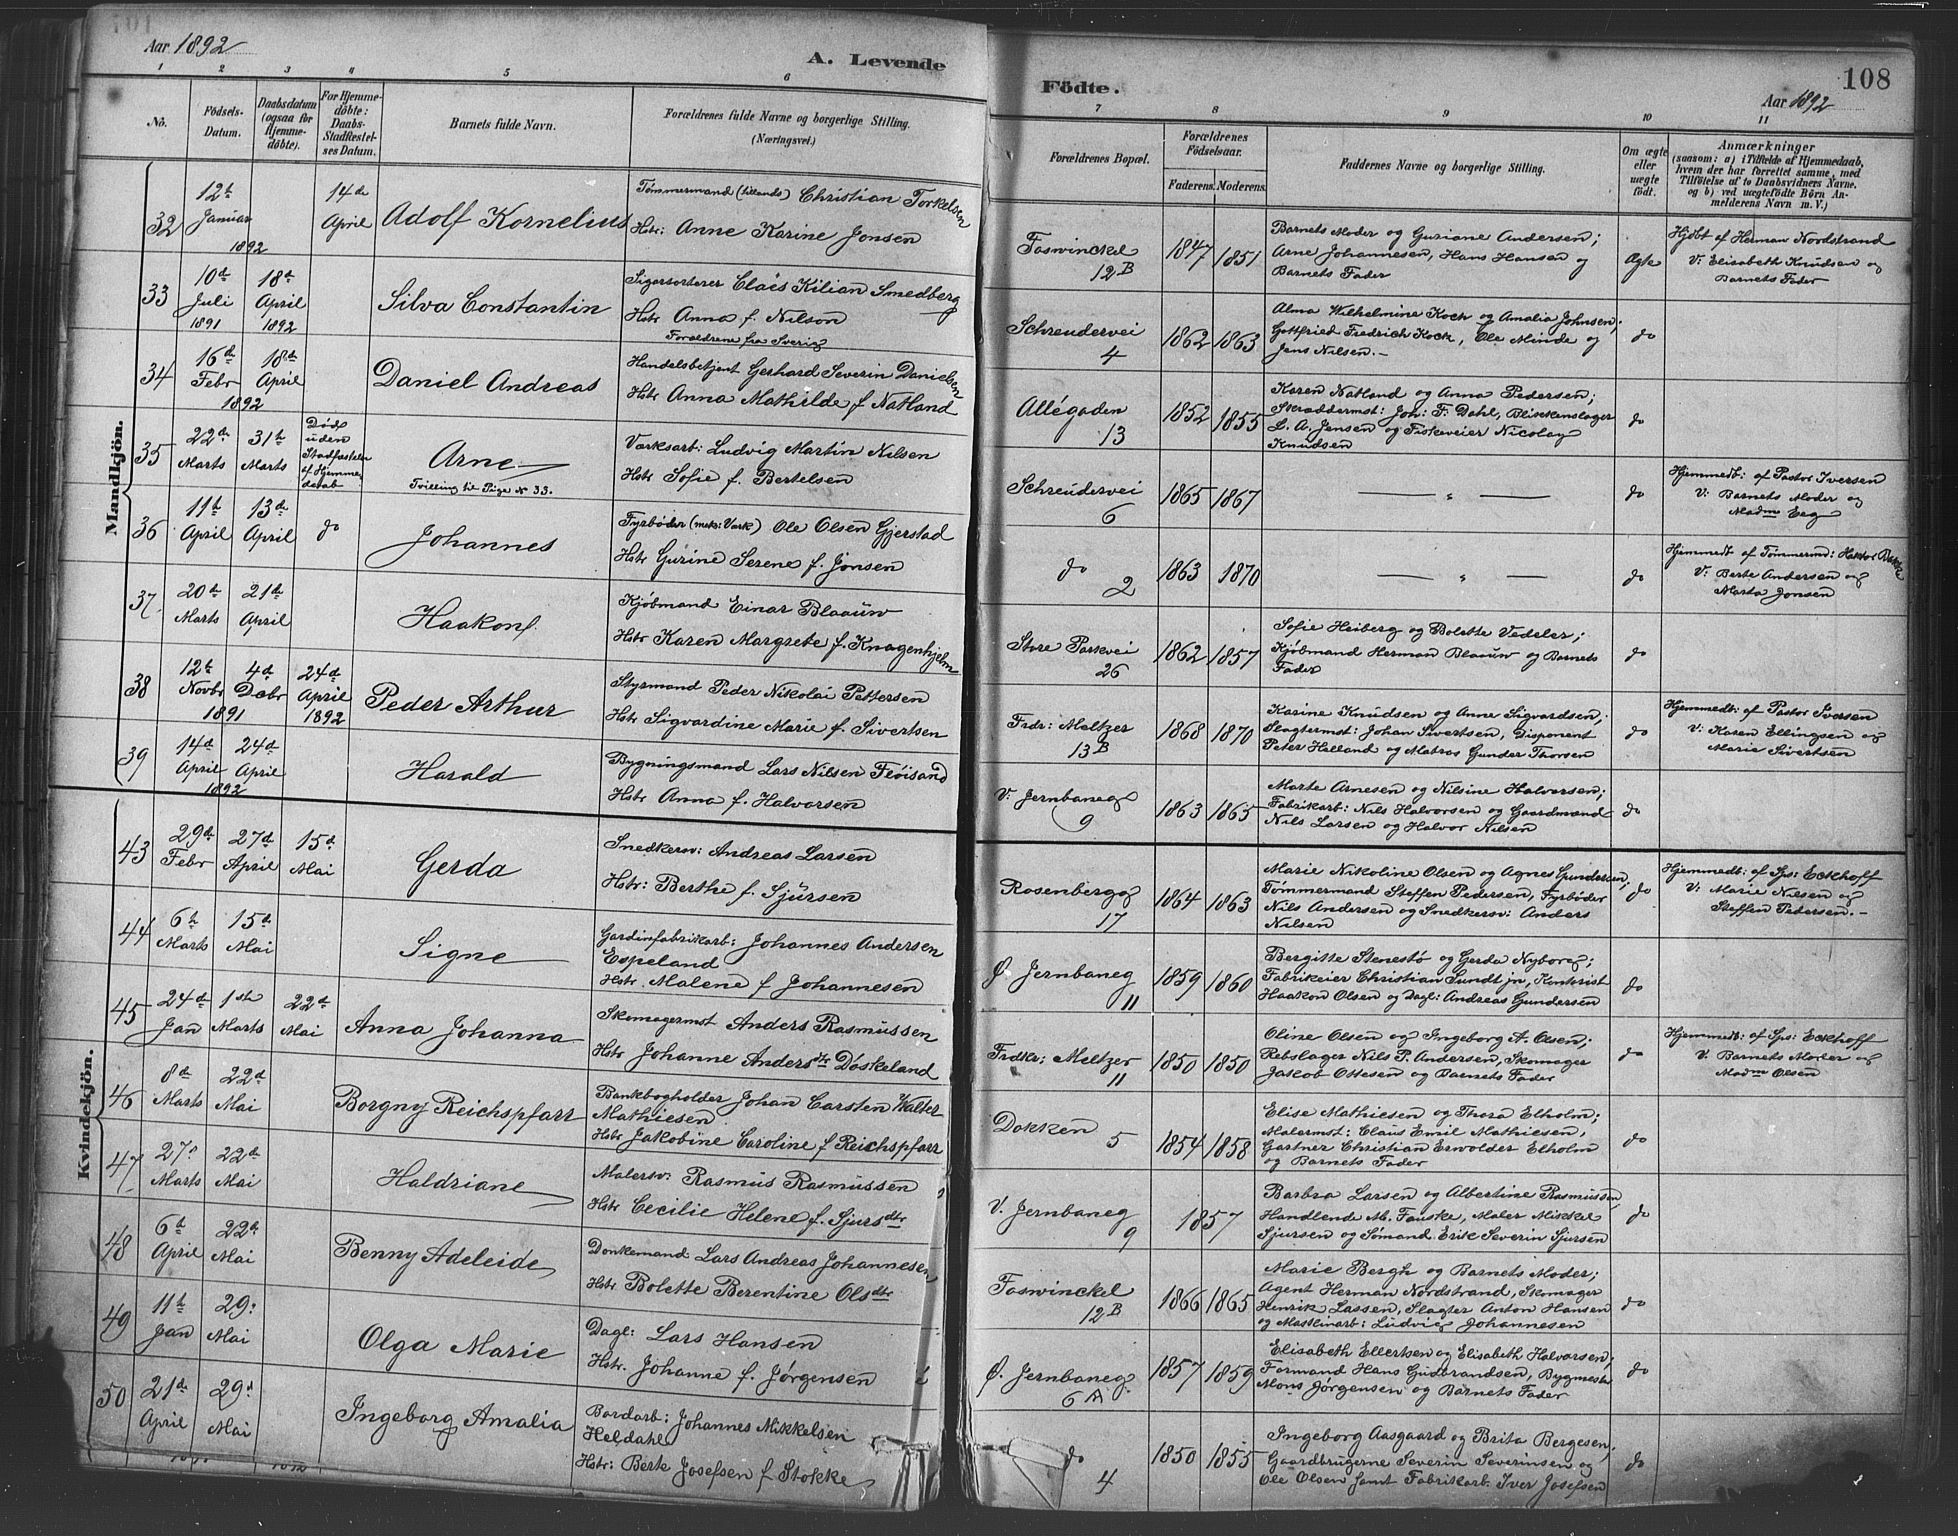 Aar 1892
A. Levende
1 2 3 4 5 6
No.
Födsels-
Datum.
Daabsdatum
(ogsaa for
Hjemme-
döbte).
For Hjemme-
döbte:
Daabs-
Stadfæstel-
ses Datum.
Barnets fulde Navn.
Forældrenes fulde Navne og borgerlige Stilling.
(Næringsvei.)
Mandkjön.
32
12te
Januar
1892
14de
April
Adolf Kornelius
Tømmermand (tillands) Christian Torkelsen
Hstr: Anne Karine Jonsen
33
10de
Juli
1891
18de
April
1892
Silva Constantin
Sigarsorterer Claës Kilian Smedberg
Hstr Anna f. Nilson
Forældrene fra Sverig
34
16de
Febr
18de
April
1892
Daniel Andreas
Handelsbetjent Gerhard Severin Danielsen
Hstr Anna Mathilde f Natland
35
22de
Marts
31te
Marts
Død
uden
Stadfæstelse
af Hjemme
daab
Arne
Tvilling til Pige N 33.
Værksarb: Ludvig Martin Nilsen
Hstr Sofie f. Bertelsen
36
11te
April
13de
April
do
Johannes
Fyrbøder (meks: Værk) Ole Olsen Gjerstad
Hstr Gurine Serene f. Jonsen
37
20de
Marts
21de
April
Haakon
Kjøbmand Einar Blaauw
Hstr Karen Margrete f. Knagenhjelm
38
12te
Novbr
4de
Decbr
1891
24de
April
1892
Peder Arthur
Styrmand Peder Nikolai Pettersen
Hstr Sigvardine Marie f. Sivertsen
39
14de
April
24de
April
1892
Harald
Bygningsmand Lars Nilsen Fløisand
Hstr Anna f. Halvorsen
Kvindekjön.
43
29de
Febr
27de
April
15de
Mai
Gerda
Snedkersv: Andreas Larsen
Hstr: Berthe f. Sjursen
44
6te
Marts
15de
Mai
Signe
Gardinfabrikarb: Johannes Andersen
Espeland
Hstr. Malene f Johannesen
45
24de
Jan
1ste
Marts
22de
Mai
Anna Johanna
Skomagermst Anders Rasmussen
Hstr Johanne Andersdtr Døskeland
46
8de
Marts
22de
Mai
Borgny Reichspfarr
Bankbogholder Johan Carsten Walter
Mathiesen
Hstr Jakobine Caroline f Reichspfarr
47
27.
Marts
22de
Mai
Haldriane
Malersv: Rasmus Rasmussen
Hstr Cecilie Helene f. Sjursdtr
48
6te
April
22de
Mai
Benny Adeleide
Donkemand Lars Andreas Johannesen
Hstr Bolette Berentine Olsdtr
49
11te
Jan
29.
Mai
Olga Marie
Dagl: Lars Hansen
Hstr. Johanne f. Jørgensen
50
21de
April
29.
Mai
Ingeborg Amalia
Bordarb: Johannes Mikkelsen
Heldahl
Hstr: Berte Josefsen f Stokke
Födte.
108
Aar 1892
7 8 9 10 11
Forældrenes Bopæl.
Forældrenes
Födselsaar.
Faderens. Moderens.
Faddernes Navne og borgerlige Stilling.
Om ægte
eller
uægte
födt.
Anmærkninger
(saasom: a) i Tilfælde af Hjemmedaab,
hvem der har forrettet samme, med
Tilföielse af to Daabsvidners Navne.
og b) ved uægtefödte Börn An-
melderens Navn m. V.)
Foswinckel
12B
1847 1851
Barnets Moder og Guriane Andersen;
Arne Johannesen, Hans Hansen og
Barnets Fader
Ægte
Hjdbt af Herman Nordstrand
V: Elisabeth Knudsen og
Barnets Fader
Schreudervei
4
1862 1863
Alma Wilhelmine Koch og Amalia Johnsen;
Gottfried Fredrich Kock, Ole Minde og
Jens Nilsen.-
do
Allégaden
13
1852 1855
Karen Natland og Anna Pedersen;
Skræddermst: Joh: F. Dahl, Blikkenslager
L. A. Jensen og Fiskeveier Nicolay
Knudsen
do
Schreudervei
6
1865 1867
— " —
do
Hjemmedt: af Pastor Iversen
V: Barnets Moder og
Madm Eeg
do
2
1863 1870
— " —
do
Hjemmedt af Tømmermd: Haktor Bakke
V: Berte Andersen og
Marta Jonsen
Store Parkvei
26
1862 1857
Sofie Heiberg og Bolette Vedeler;
Kjøbmand Herman Blaauw og Barnets
Fader
do
Frdr: Meltzer
13B
1868 1870
Karine Knudsen og Anne Sigvardsen;
Slagtermst: Johan Sivertsen, Disponent
Peter Helland og Matros Gunder Thorsen
do
Hjemmedt: af Pastor Iversen
V: Karen Ellingsen og
Marie Sivertsen
V: Jernbaneg
9
1863 1865
Marte Arnesen og Nilsine Halvorsen;
Fabrikarb: Nils Halvorsen og Gaardmænd
Nils Larsen og Halvor Nilsen
do
Rosenbergg
17
1864 1863
Marie Nikoline Olsen og Agnes Gundersen;
Tømmermand Steffen Pedersen, Fyrbøder
Nils Andersen og Snedkersv: Anders
Nilsen
do
Hjemmedt: af Sps: Eckhoff
V: Marie Nilsen og
Steffen Pedersen.-
Ø. Jernbaneg
11
1859 1860
Bergitte Stenestø og Gerda Nyborg;
Fabrikeier Christian Sundt jn, Kontorist
Haakon Olsen og Dagl: Andreas Gundersen
do
Frdkr: Meltzer
11
1850 1850
Oline Olsen og Ingeborg A. Olsen;
Rebslager Nils P. Andersen, Skomager
Jakob Ottesen og Barnets Fader
do
Hjemmedt: af Sps: Eckhoff
V. Barnets Moder og
Madm Olsen
Dokken 5
1854 1858
Elise Mathiesen og Thora Elholm;
Malermst: Claus Emil Mathiesen,
Gartner Christian Ewolder Elholm
og Barnets Fader
do
V. Jernbaneg
9
1857
Barbra Larsen og Albertine Rasmussen,
Handlende M. Fauske, Maler Mikkel
Sjursen og Sømand Erik Severin Sjursen
do
Foswinckel
12B
1866 1865
Marie Bergh og Barnets Moder;
Agent Herman Nordstrand, Skomager
Henrik Lassen, Slagter Anton Hansen
og Maskinarb: Ludvig Johannesen
do
Ø. Jernbaneg
6 A
1857 1859
Elisabeth Ellertsen og Elisabeth Halvorsen;
Formand Hans Gudbrandsen, Bygmester
Mons Jørgensen og Barnets Fader
do
do
4
1850 1855
Ingeborg Aasgaard og Brita Bergesen;
Gaardbrugerne Severin Severinsen og
Ole Olsen samt Fabrikarb. Iver Josefsen
do